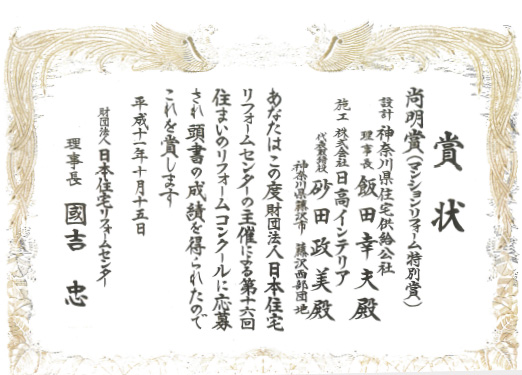 賞状
尚明賞(マンションリフォーム特別賞)
設計 神奈川県住宅供給公社
理事長 飯田幸夫殿
施工 株式会社日高インテリア
代表取締役 砂田政美殿
神奈川県藤沢市 藤沢西部団地
あなたはこの度財団法人日本住宅
リフォームセンターの主催による第十六回
住まいのリフォームコンクールに応募
され頭書の成績を得られたので
これを賞します
平成十一年十月十五日
財団法人 日本住宅リフォームセンター
理事長 國吉忠